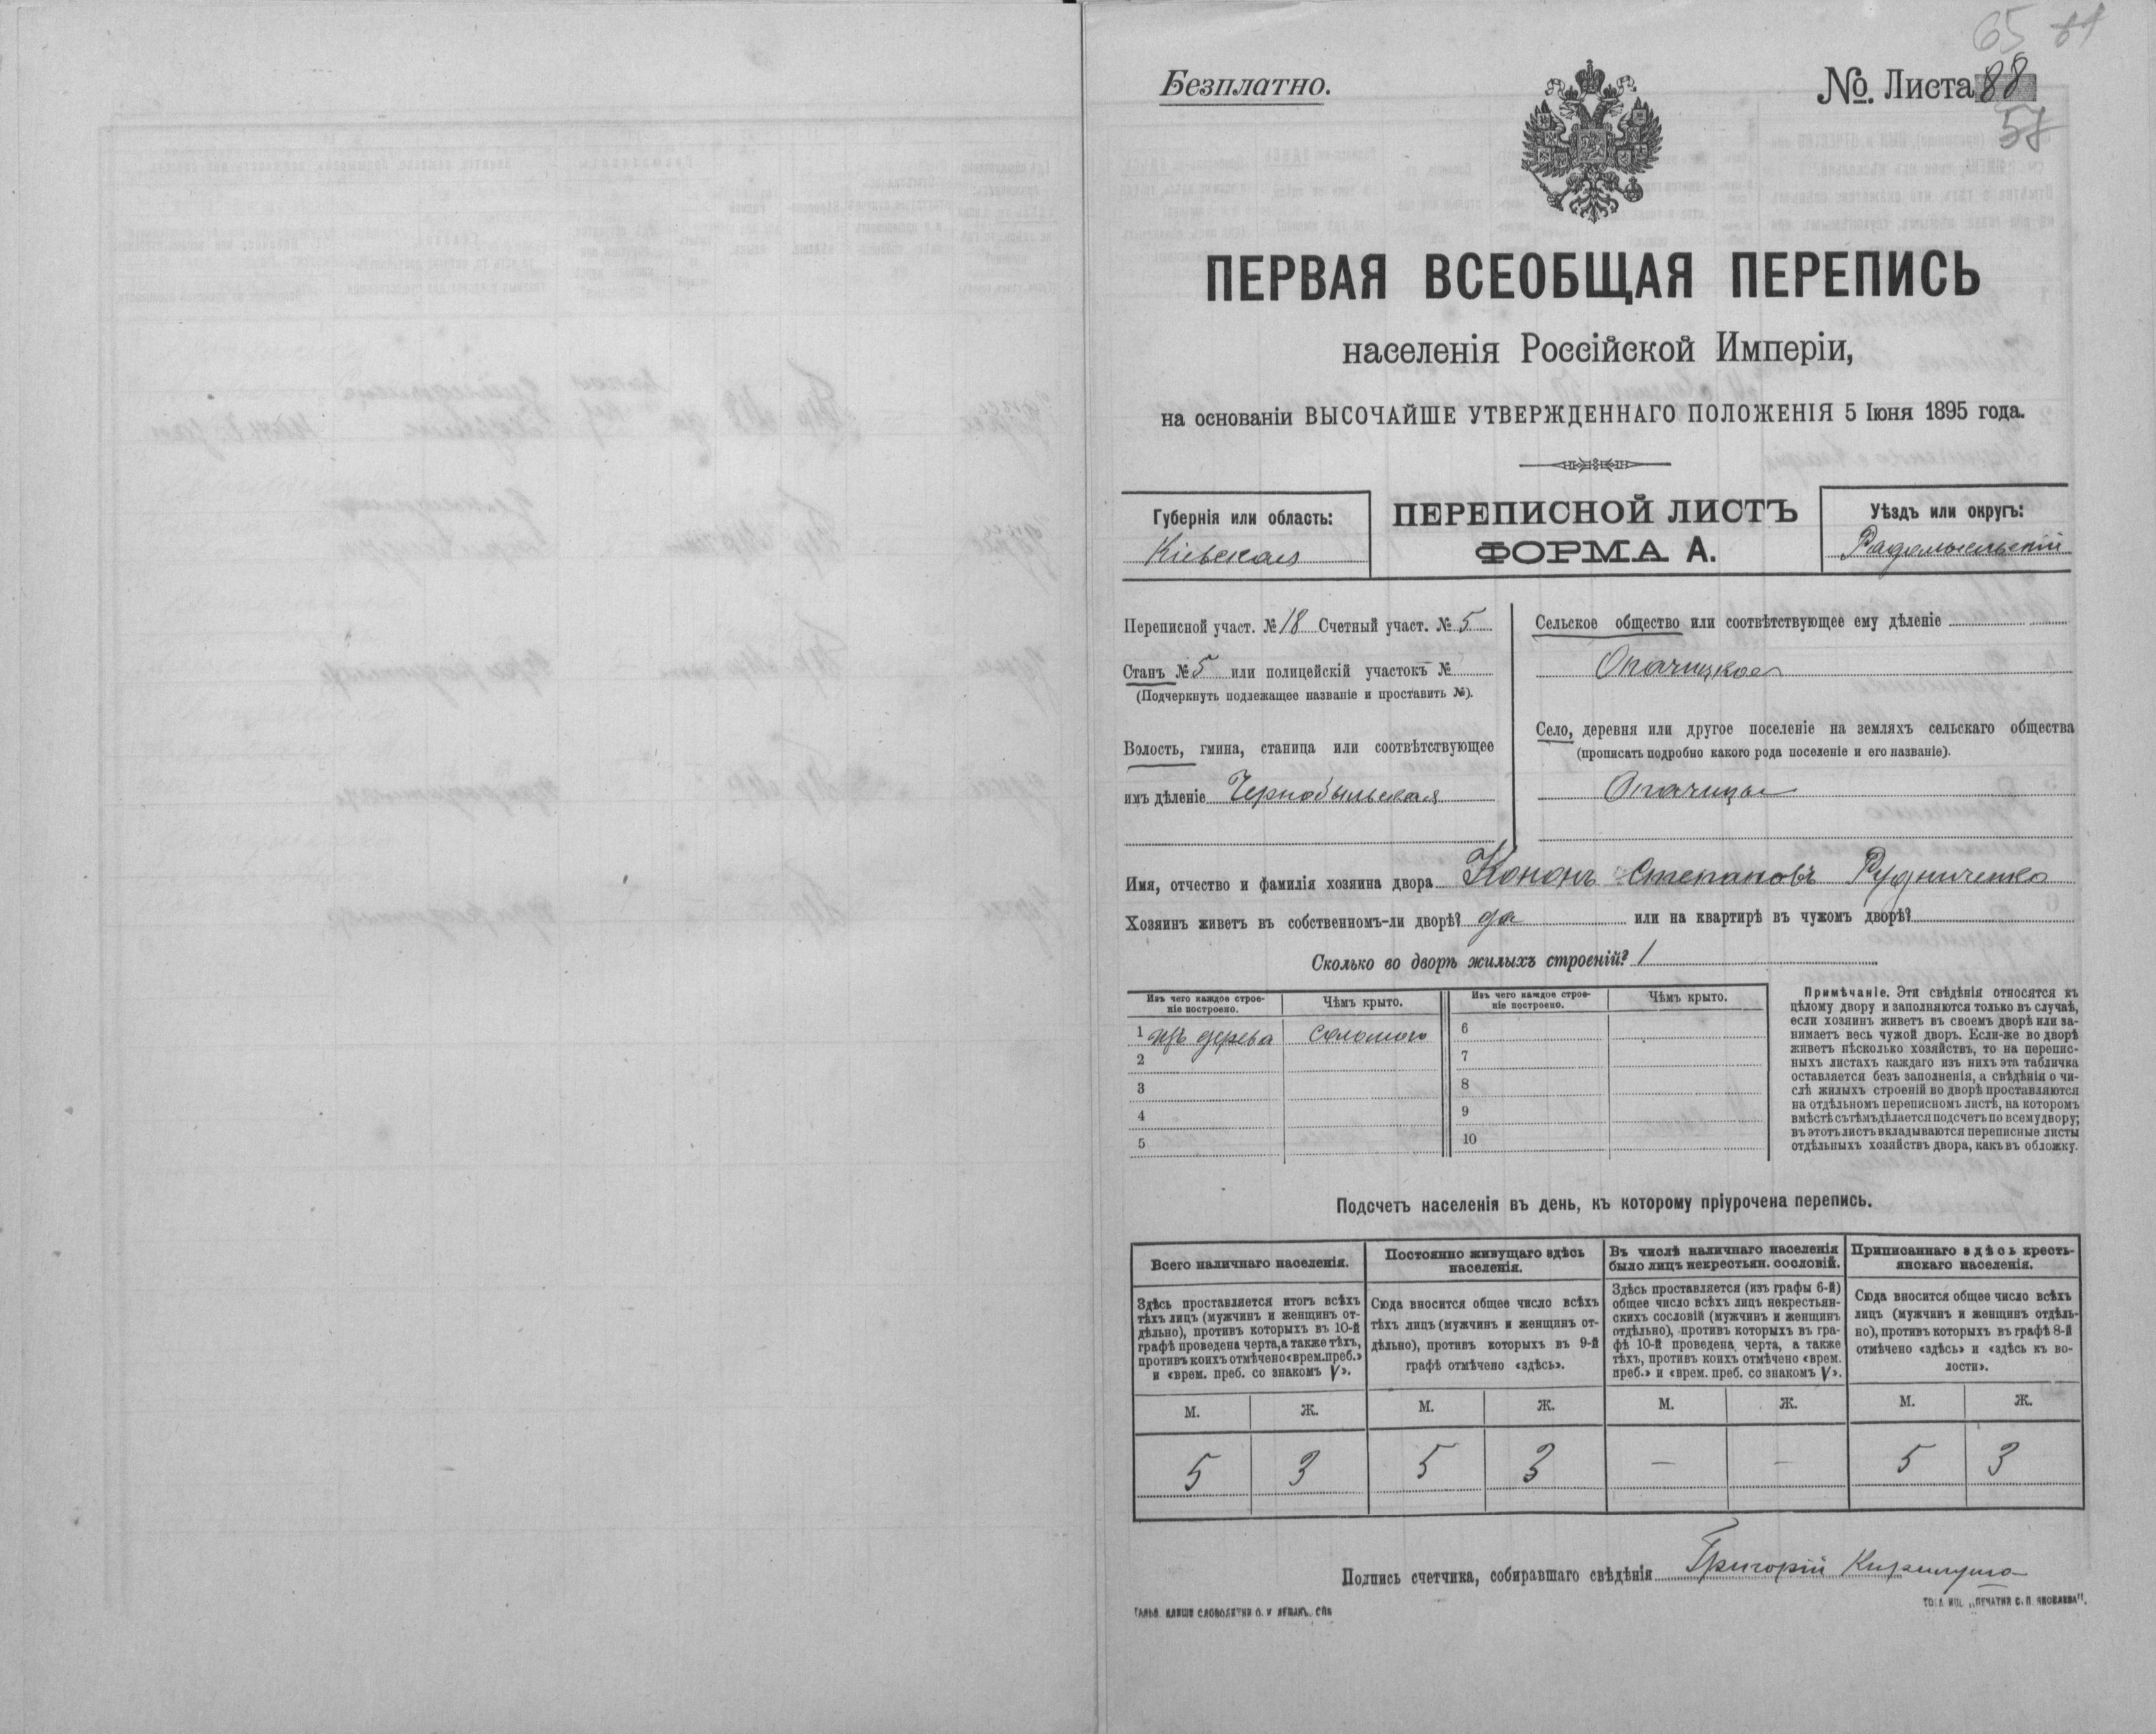 65 61
Безплатно.
№. Листа 88
57
ПЕРВАЯ ВСЕОБЩАЯ ПЕРЕПИСЬ
населенія Россійской Имперіи,
на основаніи ВЫСОЧАЙШЕ УТВЕРЖДЕННАГО ПОЛОЖЕНІЯ 5 Іюня 1895 года.
Губернія или область:
Кіевская
ПЕРЕПИСНОЙ ЛИСТЪ
ФОРМА А.
Уѣздъ или округъ:
Радомысльскій
Переписной участ. № 18 Счетный участ. № 5
Станъ № 5 или полицейскій участокъ №
(Подчеркнуть подлежащее названіе и проставить №).
Волость, гмина, станица или соотвѣтствующее
имъ дѣленіе Чернобыльская
Сельское общество или соотвѣтствующее ему дѣленіе
Опачицкое
Село, деревня или другое поселеніе на земляхъ сельскаго общества
(прописать подробно какого рода поселеніе и его названіе).
Опачицы
Имя, отчество и фамилія хозяина двора Кононъ Степановъ Рудниченко
Хозяинъ живетъ въ собственномъ-ли дворѣ? да или на квартирѣ въ чужомъ дворѣ?
Сколько во дворѣ жилыхъ строеній? 1
Изъ чего каждое строе-
ніе построено.
Чѣмъ крыто.
Изъ чего каждое строе-
ніе построено.
Чѣмъ крыто.
1 изъ дерева соломою 6
2 7
3 8
4 9
5 10
Примѣчаніе. Эти свѣдѣнія относятся къ
цѣлому двору и заполняются только въ случаѣ,
если хозяинъ живетъ въ своемъ дворѣ или за-
нимаетъ весь чужой дворъ. Если-же во дворѣ
живетъ нѣсколько хозяйствъ, то на перепис-
ныхъ листахъ каждаго изъ нихъ эта табличка
оставляется безъ заполненія, а свѣдѣнія о чи-
слѣ жилыхъ строеній во дворѣ проставляются
на отдѣльномъ переписномъ листѣ, на которомъ
вмѣстѣ съ тѣмъ дѣлается подсчетъ по всему двору;
въ этотъ листъ вкладываются переписные листы
отдѣльныхъ хозяйствъ двора, какъ въ обложку.
Подсчетъ населенія въ день, къ которому пріурочена перепись.
Всего наличнаго населенія.
Здѣсь проставляется итогъ всѣхъ
тѣхъ лицъ (мужчинъ и женщинъ от-
дѣльно), противъ которыхъ въ 10-й
графѣ проведена черта, а также тѣхъ,
противъ коихъ отмѣчено «врем. преб.»
и «врем. преб. со знакомъ V».
Постоянно живущаго здѣсь
населенія.
Сюда вносится общее число всѣхъ
тѣхъ лицъ (мужчинъ и женщинъ от-
дѣльно), противъ которыхъ въ 9-й
графѣ отмѣчено «здѣсь».
Въ числѣ наличнаго населенія
было лицъ некрестьян. сословій.
Здѣсь проставляется (изъ графы 6-й)
общее число всѣхъ лицъ некрестьян-
скихъ сословій (мужчинъ и женщинъ
отдѣльно), противъ которыхъ въ гра-
фѣ 10-й проведена черта, а также
тѣхъ, противъ коихъ отмѣчено «врем.
преб.» и «врем. преб. со знакомъ V».
Приписаннаго здѣсь кресть-
янскаго населенія.
Сюда вносится общее число всѣхъ
лицъ (мужчинъ и женщинъ отдѣль-
но), противъ которыхъ въ графѣ 8-й
отмѣчено «здѣсь» и «здѣсь къ во-
лости».
М. Ж. М. Ж. М. Ж. М. Ж.
5 3 5 3 — — 5 3
Подпись счетчика, собиравшаго свѣдѣнія Григорій